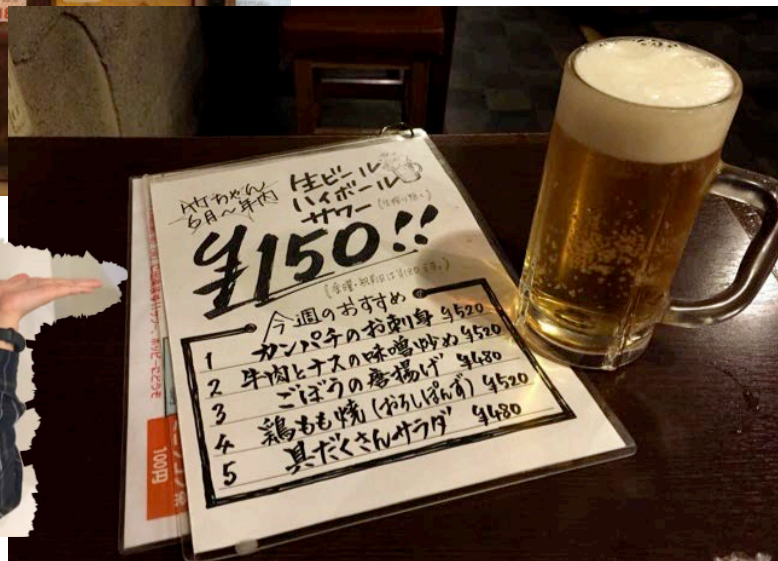 竹ちゃん
6月～年内
生ビール
ハイボール
サワー
¥150!!
今週のおすすめ
1 カンパチのお刺身 ¥520
2 牛肉とナスの味噌炒め ¥520
3 ごぼうの唐揚げ ¥480
4 鶏もも焼(おろしぽんず) ¥520
5 具だくさんサラダ ¥480
100円